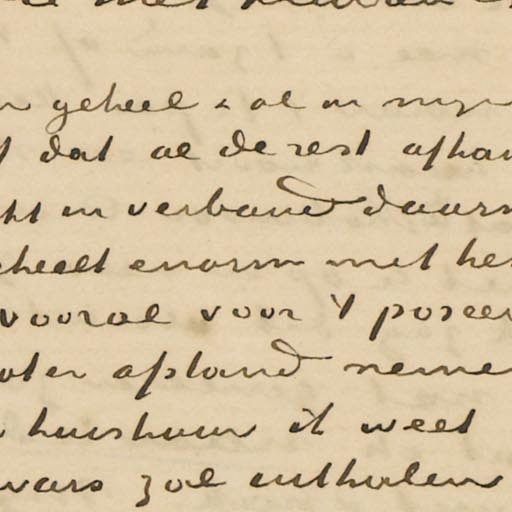 geheel & al in mijn
dat al de rest afhan
in verband daarm
scheelt enorm met het
vooral voor 't poseer
oter afstand neme
huishuur ik weet
zal uithalen